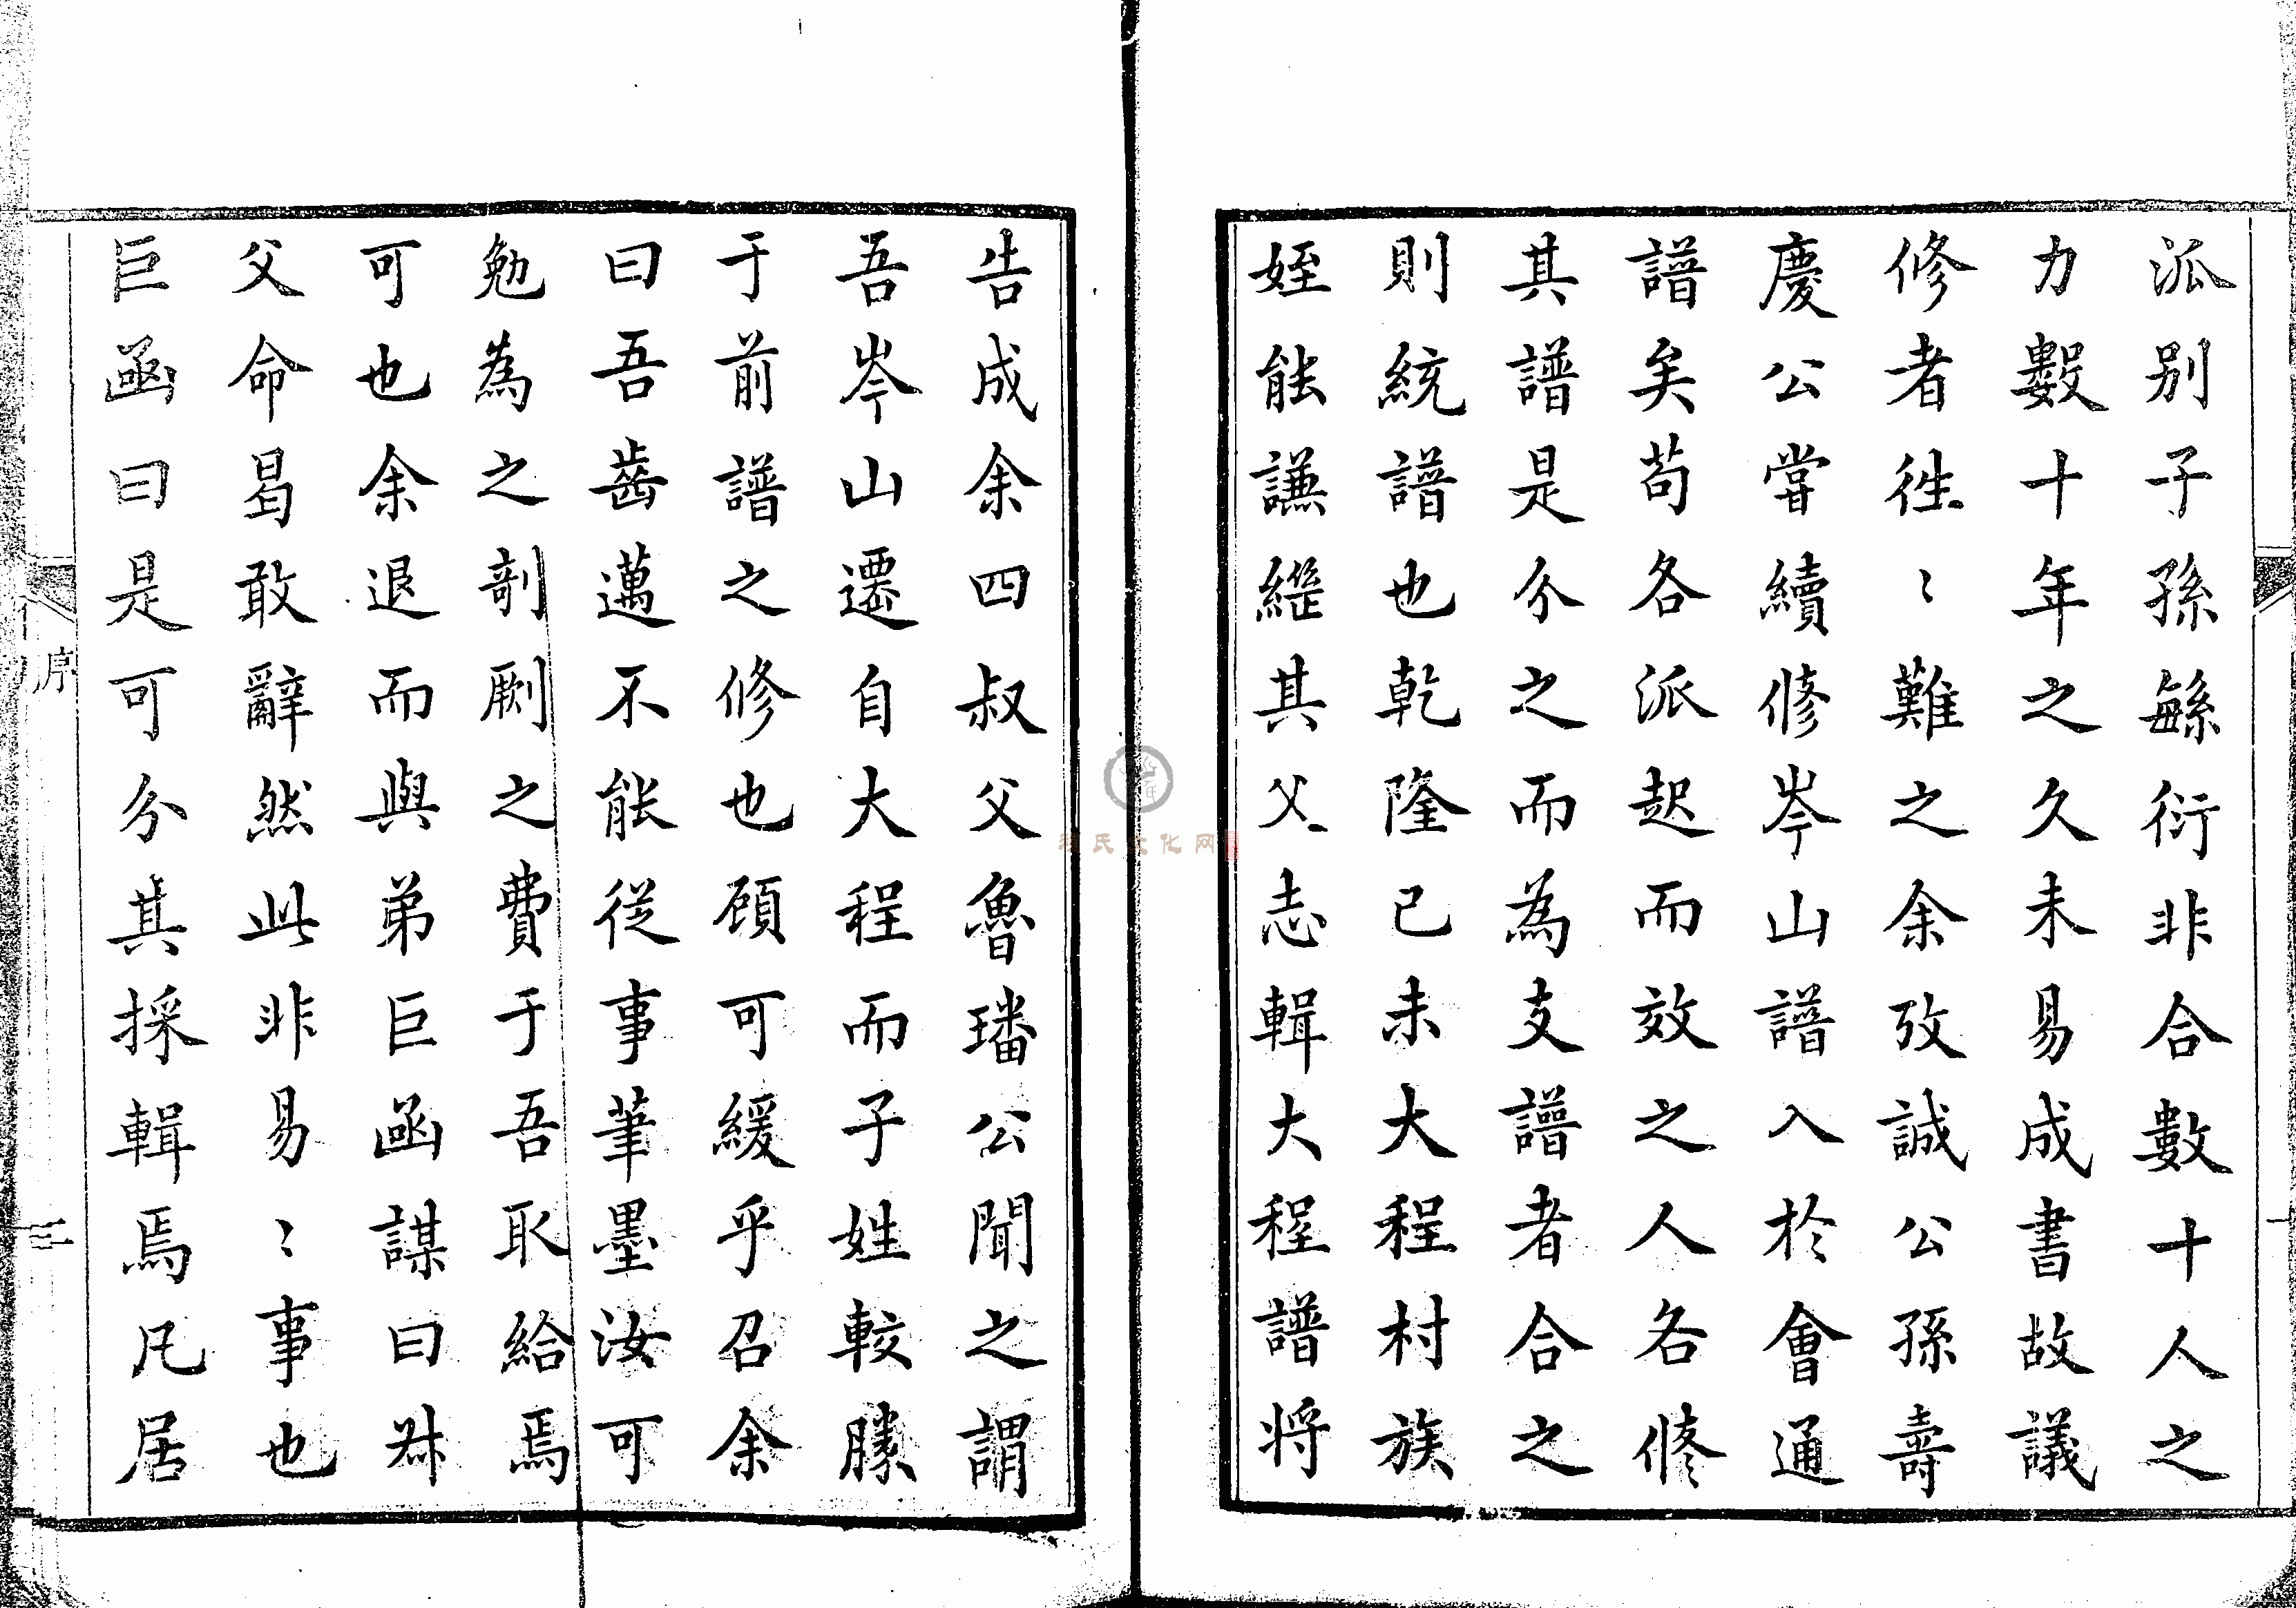 派别子孫繇衍非合數十人之
力數十年之久未易成書故議
修者徃〻難之余攷誠公孫壽
慶公嘗續修岑山譜入於會通
譜矣苟各派起而效之人各修
其譜是分之而為支譜者合之
則統譜也乾隆己未大程村族
姪能謙繼其父志輯大程譜將
告成余四叔父魯璠公聞之謂
吾岑山遷自大程而子姓較勝
于前譜之修也顧可緩乎召余
曰吾齒邁不能從事筆墨汝可
勉為之剞劂之費于吾取給焉
可也余退而與弟巨函謀曰叔
父命曷敢辭然此非易〻事也
巨函曰是可分其採輯焉凡居
序
三
程氏文化网